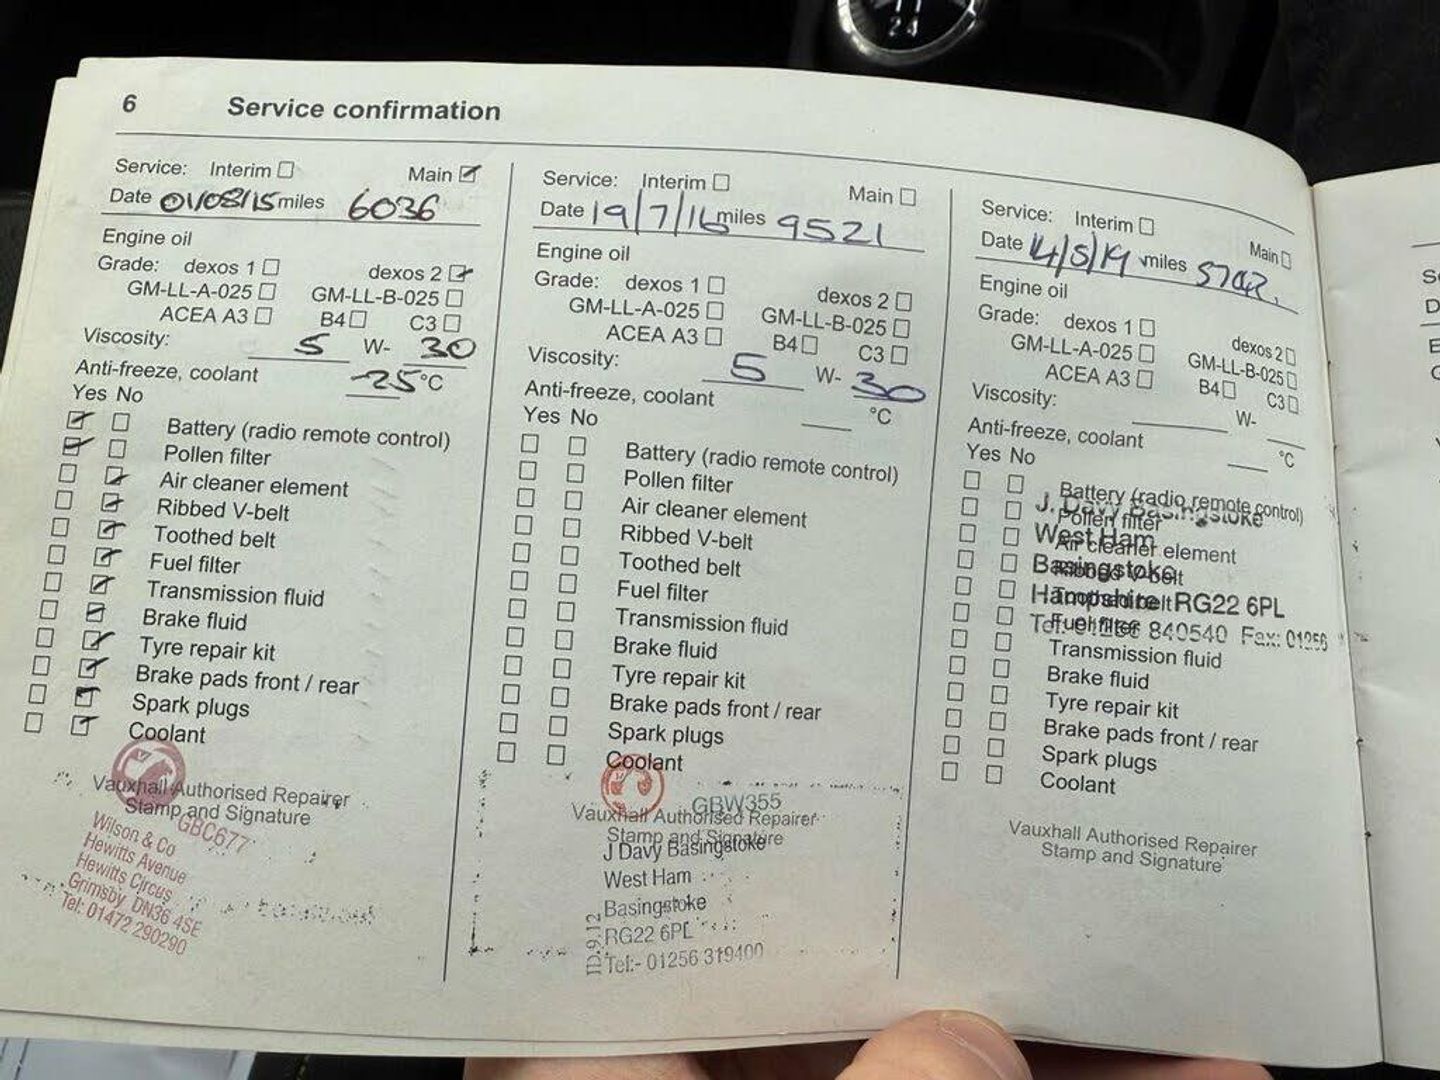 6 Service confirmation
Service: Interim Main
Date 01/08/15 miles 6036
Engine oil
Grade: dexos 1 dexos 2
GM-LL-A-025 GM-LL-B-025
ACEA A3 B4 C3
Viscosity: 5 W- 30
Anti-freeze, coolant -25 °C
Yes No
Battery (radio remote control)
Pollen filter
Air cleaner element
Ribbed V-belt
Toothed belt
Fuel filter
Transmission fluid
Brake fluid
Tyre repair kit
Brake pads front / rear
Spark plugs
Coolant
Vauxhall Authorised Repairer
Stamp and Signature
GBC677
Wilson & Co
Hewitts Avenue
Hewitts Circus
Grimsby DN36 4SE
Tel: 01472 290290
Service: Interim Main
Date 19/7/16 miles 9521
Engine oil
Grade: dexos 1 dexos 2
GM-LL-A-025 GM-LL-B-025
ACEA A3 B4 C3
Viscosity: 5 W- 30
Anti-freeze, coolant °C
Yes No
Battery (radio remote control)
Pollen filter
Air cleaner element
Ribbed V-belt
Toothed belt
Fuel filter
Transmission fluid
Brake fluid
Tyre repair kit
Brake pads front / rear
Spark plugs
Coolant
GBW355
Vauxhall Authorised Repairer
Stamp and Signature
J Davy Basingstoke
West Ham
Basingstoke
RG22 6PL
Tel:- 01256 319400
TD.9.12
Service: Interim Main
Date miles
Engine oil
Grade: dexos 1 dexos 2
GM-LL-A-025 GM-LL-B-025
ACEA A3 B4 C3
Viscosity: W-
Anti-freeze, coolant °C
Yes No
Battery (radio remote control)
J. Davy Basingstoke
Pollen filter
West Ham
Air cleaner element
Basingstoke
Ribbed V-belt
Hampshire RG22 6PL
Toothed belt
Fuel filter
Tel: 01256 840540 Fax: 01256
Transmission fluid
Brake fluid
Tyre repair kit
Brake pads front / rear
Spark plugs
Coolant
Vauxhall Authorised Repairer
Stamp and Signature
2 4